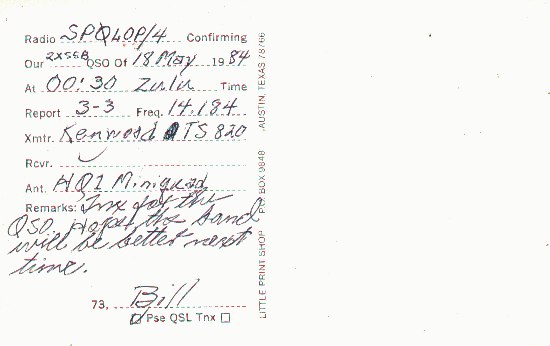 Radio SPQ4OP/4 Confirming
Our 2XSSB QSO Of 18 May 1984
At 00:30 Zulu Time
Report 3-3 Freq. 14.184
Xmtr. Kenwood TS 820
Rcvr.
Ant. HQ1 Miniquad
Remarks: Tnx for the
QSO. Hope the band
will be better next
time.
73, Bill
Pse QSL Tnx
LITTLE PRINT SHOP P.O. BOX 9848 AUSTIN, TEXAS 78766